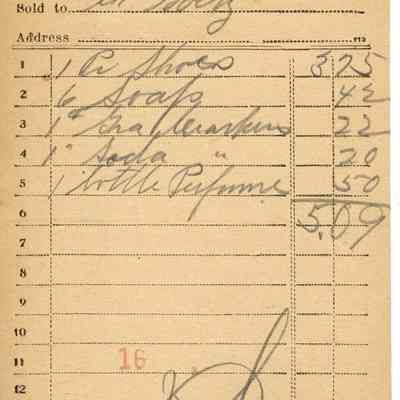 Sold to
Address
1 1 Pr Shoes 3 75
2 6 Soaps 42
3 1# Gra Crackers 22
4 1" Soda " 20
5 1 bottle Perfume 50
6 5.09
7
8
9
10
11 16
12